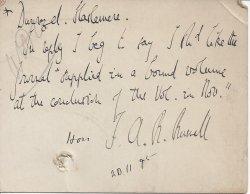 Dunrozel. Haslemere.
In reply I beg to say I shd like the
Journal "supplied in a bound volume
at the conclusion of the Vol. in Nov."
F. A. R. Russell
20 11 95